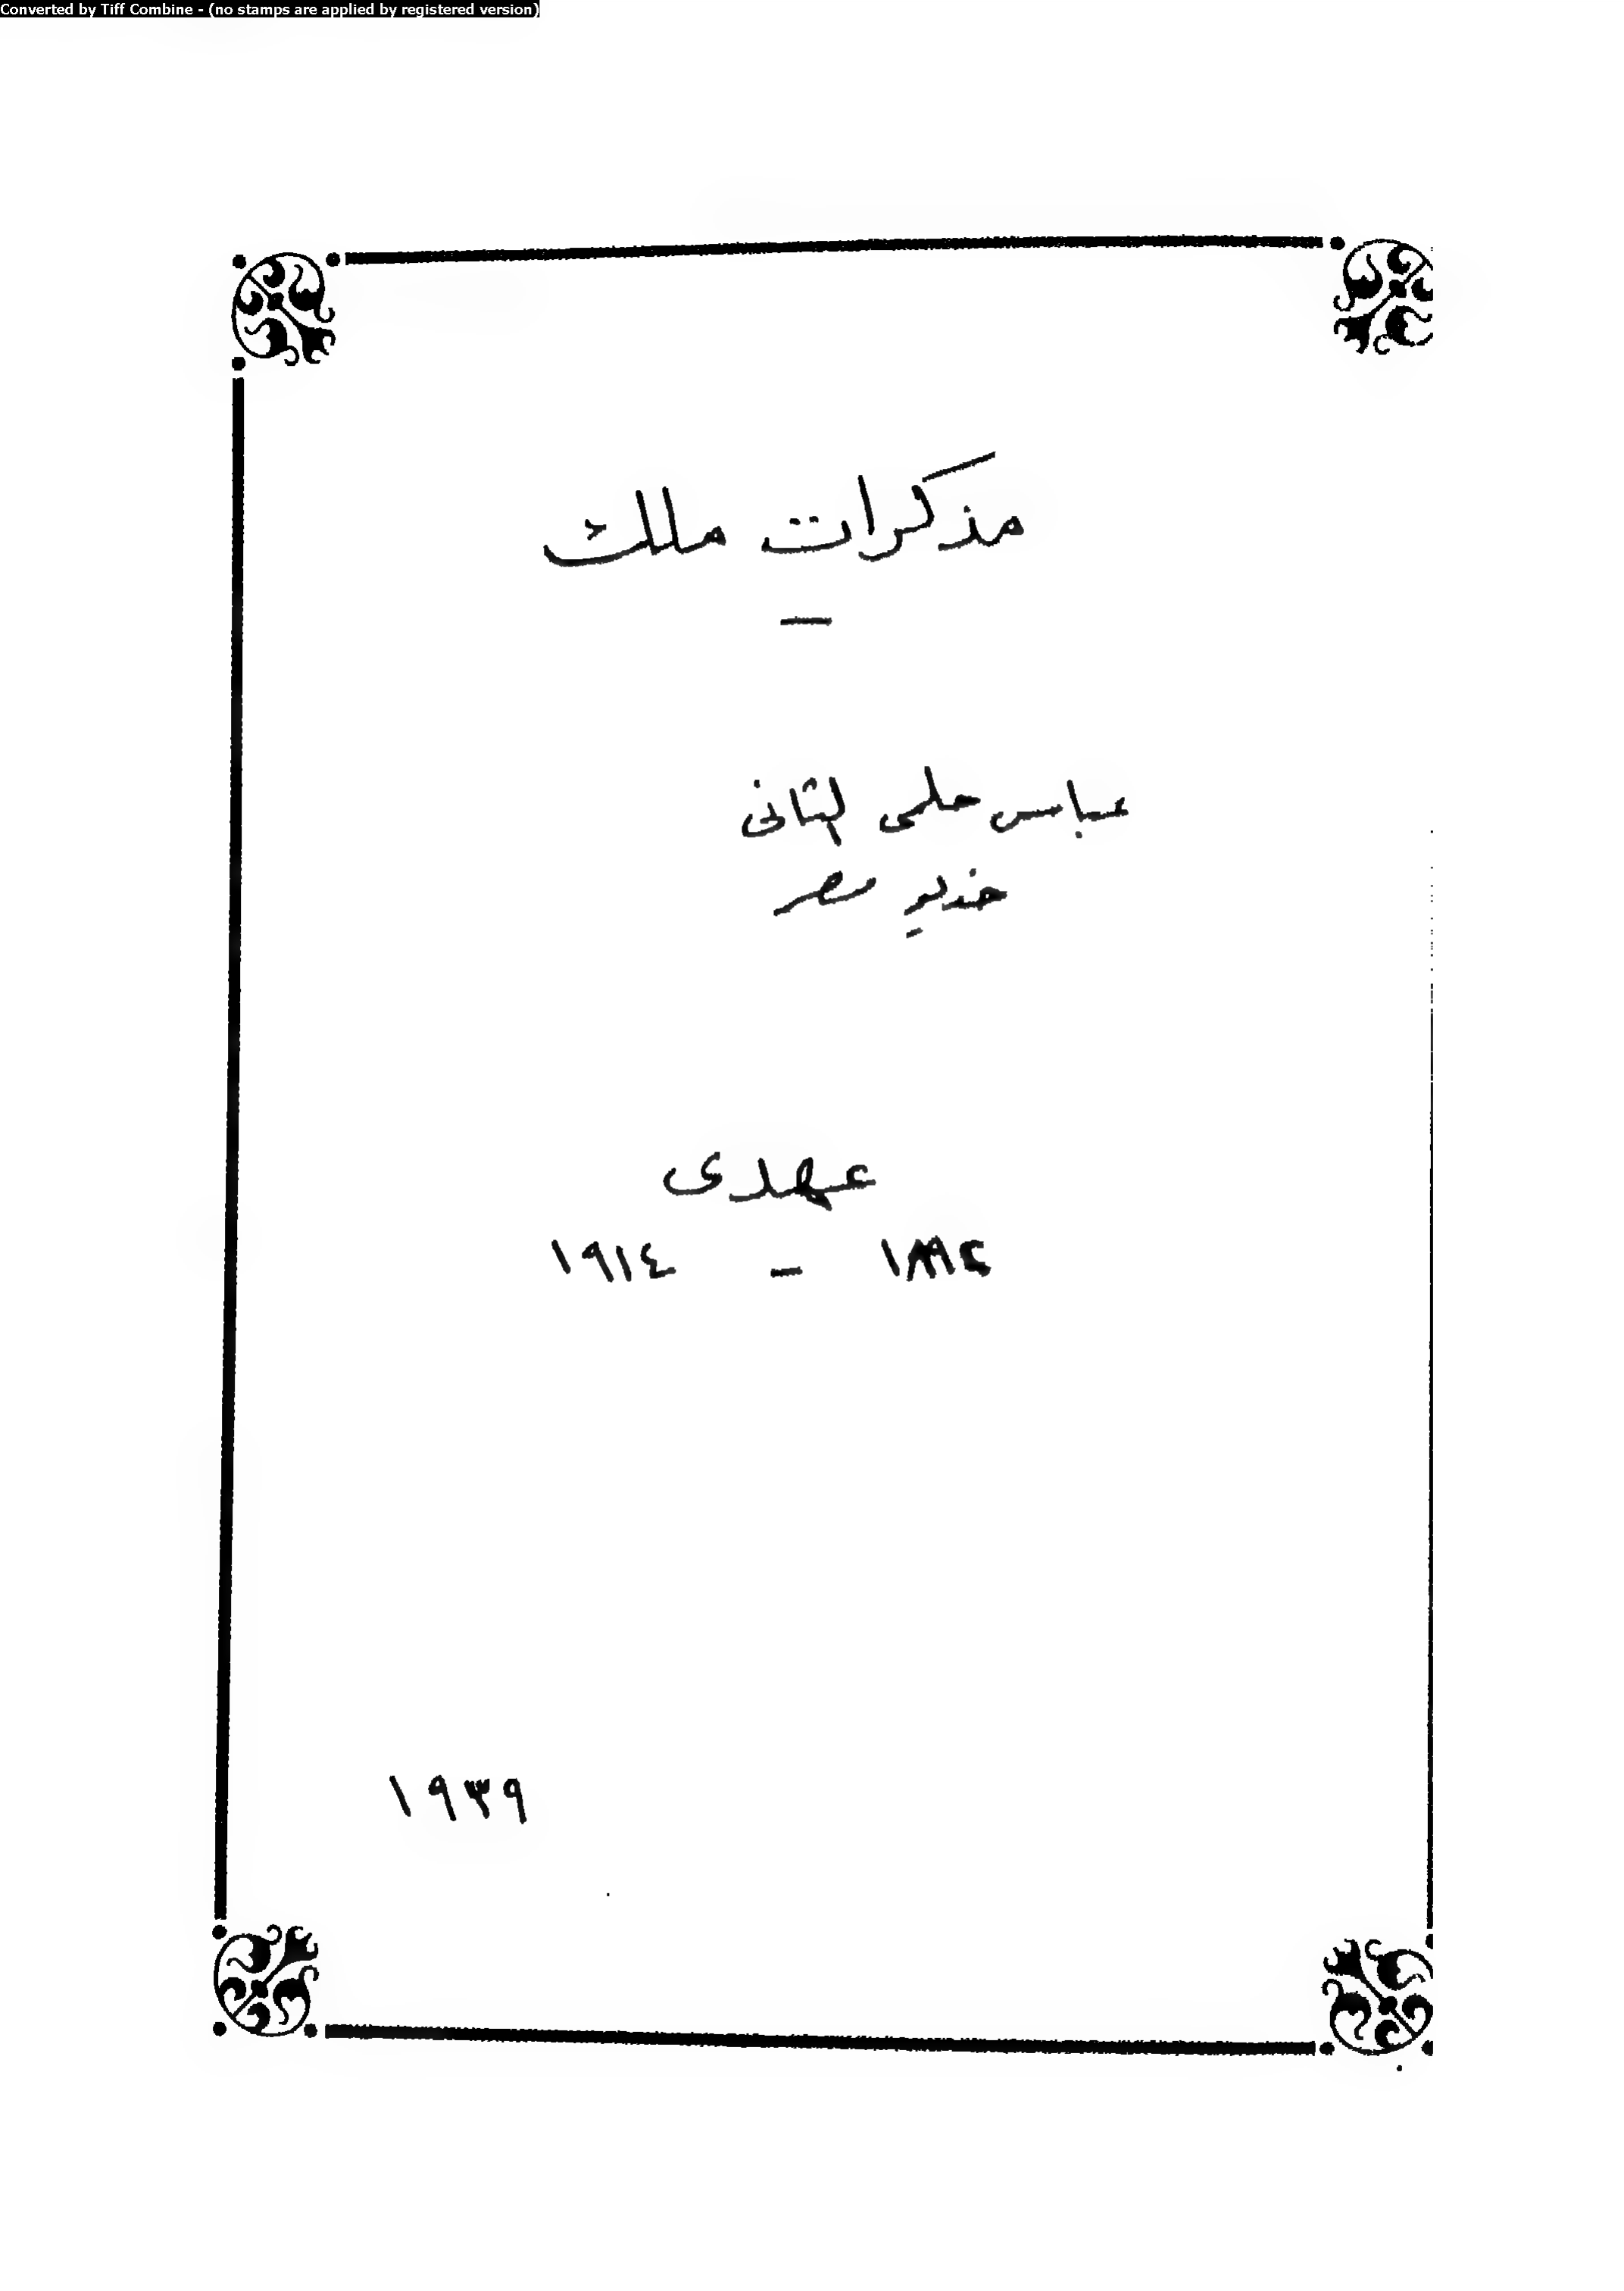 Converted by Tiff Combine - (no stamps are applied by registered version)
مذكرات ملك
—
عباس حلمى الثانى
خديو مصر
عهدى
١٨٩٢ - ١٩١٤
١٩٣٩